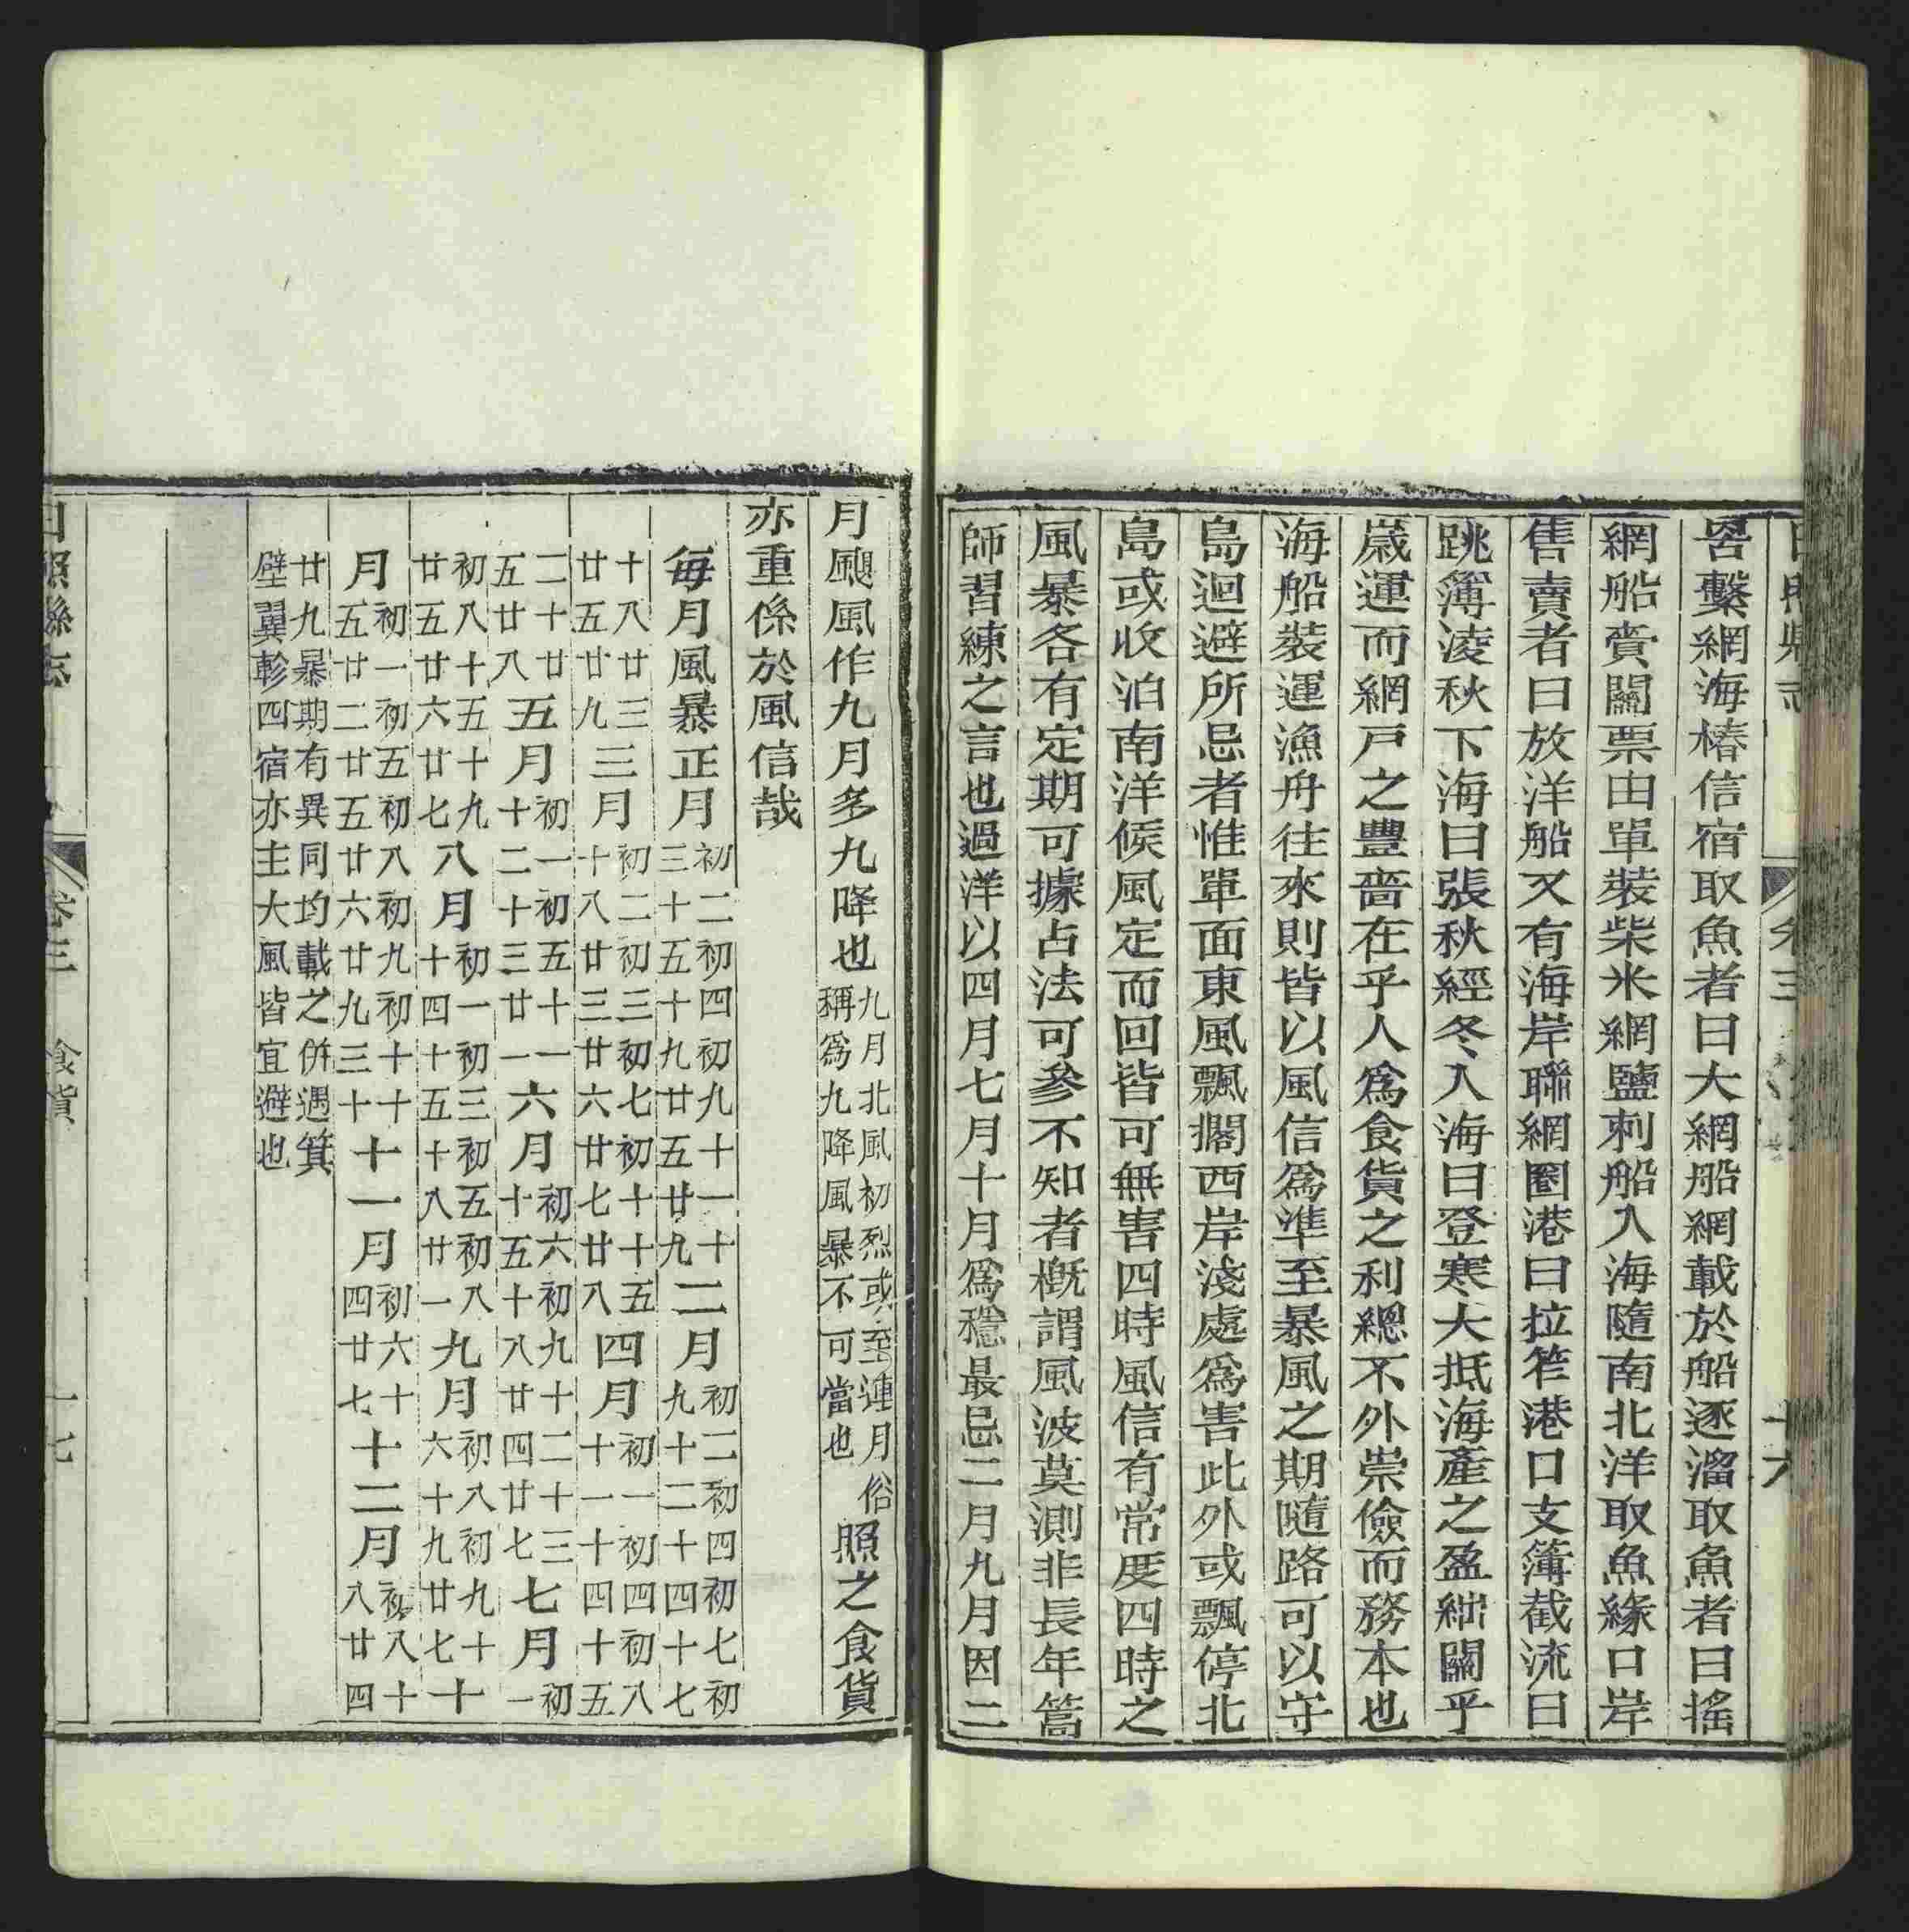 罟繫網海椿信宿取魚者曰大網船網載於船逐溜取魚者曰搖
網船賫關票由單裝柴米網鹽刺船入海隨南北洋取魚緣口岸
售賣者曰放洋船又有海岸聯網圏港曰拉笮港口支簿截流曰
跳簿淩秋下海曰張秋經冬入海曰登寒大抵海產之盈絀關乎
歲運而網戸之豐嗇在乎人爲食貨之利總不外崇儉而務本也
海船裝運漁舟往來則皆以風信爲準至暴風之期隨路可以守
島迴避所忌者惟單面東風飄擱西岸淺處爲害此外或飄停北
島或收泊南洋候風定而回皆可無害四時風信有常度四時之
風暴各有定期可據占法可參不知者槪謂風波莫測非長年篙
師習練之言也過洋以四月七月十月爲穩最忌二月九月因二
月颶風作九月多九降也九月北風初烈或至連月俗稱爲九降風暴不可當也照之食貨
亦重係於風信哉
每月風暴正月初二初四初九十一十三十五十九廿五廿九二月初二初四初七初九十二十四十七
十八廿三廿五廿九三月初二初三初七初十十五十八廿三廿六廿七廿八四月初一初四初八十一十四十五
二十廿五廿八五月初一初五十一十二十三廿一六月初六初九十二十三十五十八廿四廿七七月初一
初八十五十九廿五廿六廿七八月初一初三初五初八十四十五十八廿一九月初八初九十六十九廿七十
月初一初五初八初九初十十五廿二廿五廿六廿九三十十一月初六十四廿七十二月初八十八廿四
廿九暴期有異同均載之併遇箕壁翼軫四宿亦主大風皆宜避也
日照縣志 卷三 食貨 十七